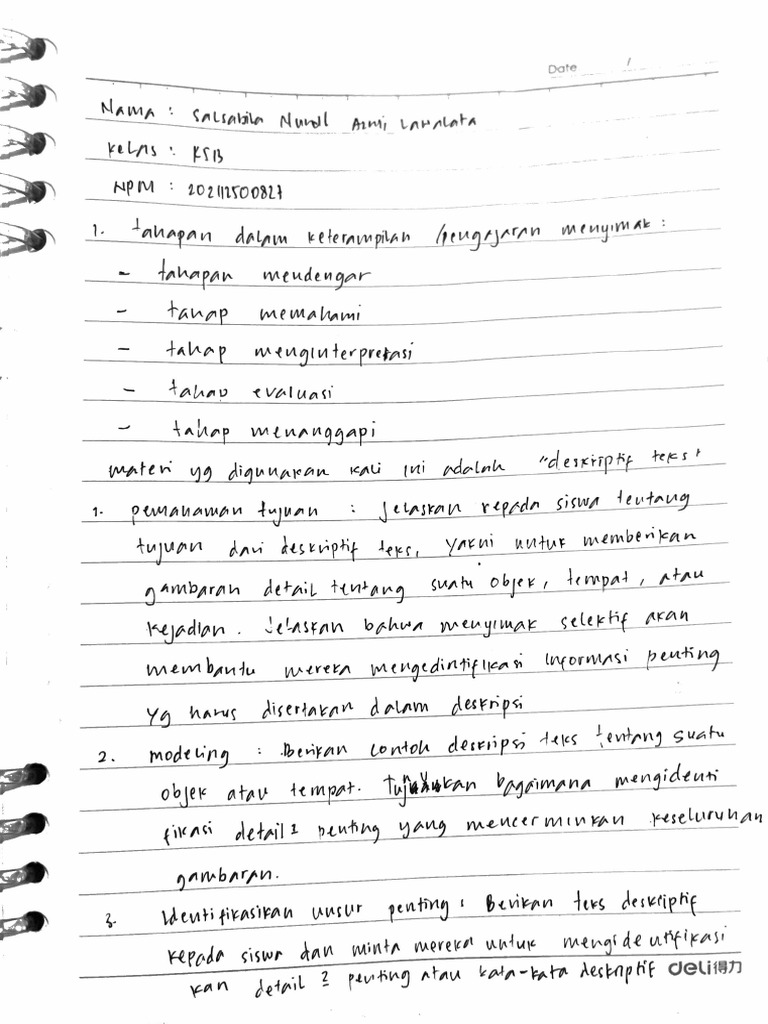 Date /
Nama : Salsabila Nurull Azmi Lawalata
Kelas : K5B
NPM : 202112500827
1. tahapan dalam keterampilan /pengajaran menyimak :
- tahapan mendengar
- tahap memahami
- tahap menginterpretasi
- tahap evaluasi
- tahap menanggapi
materi yg digunakan kali ini adalah "deskriptif teks"
1. pemahaman tujuan : jelaskan kepada siswa tentang
tujuan dari deskriptif teks, yakni untuk memberikan
gambaran detail tentang suatu objek, tempat, atau
kejadian. Jelaskan bahwa menyimak selektif akan
membantu mereka mengedintifikasi informasi penting
yg harus disertakan dalam deskripsi
2. modeling : Berikan contoh deskripsi teks tentang suatu
objek atau tempat. Tunjukkan bagaimana mengidenti
fikasi detail2 penting yang mencerminkan keseluruhan
gambaran.
3. Identifikasikan unsur penting : Berikan teks deskriptif
kepada siswa dan minta mereka untuk mengidentifikasi
kan detail 2 penting atau kata-kata deskriptif
deli得力